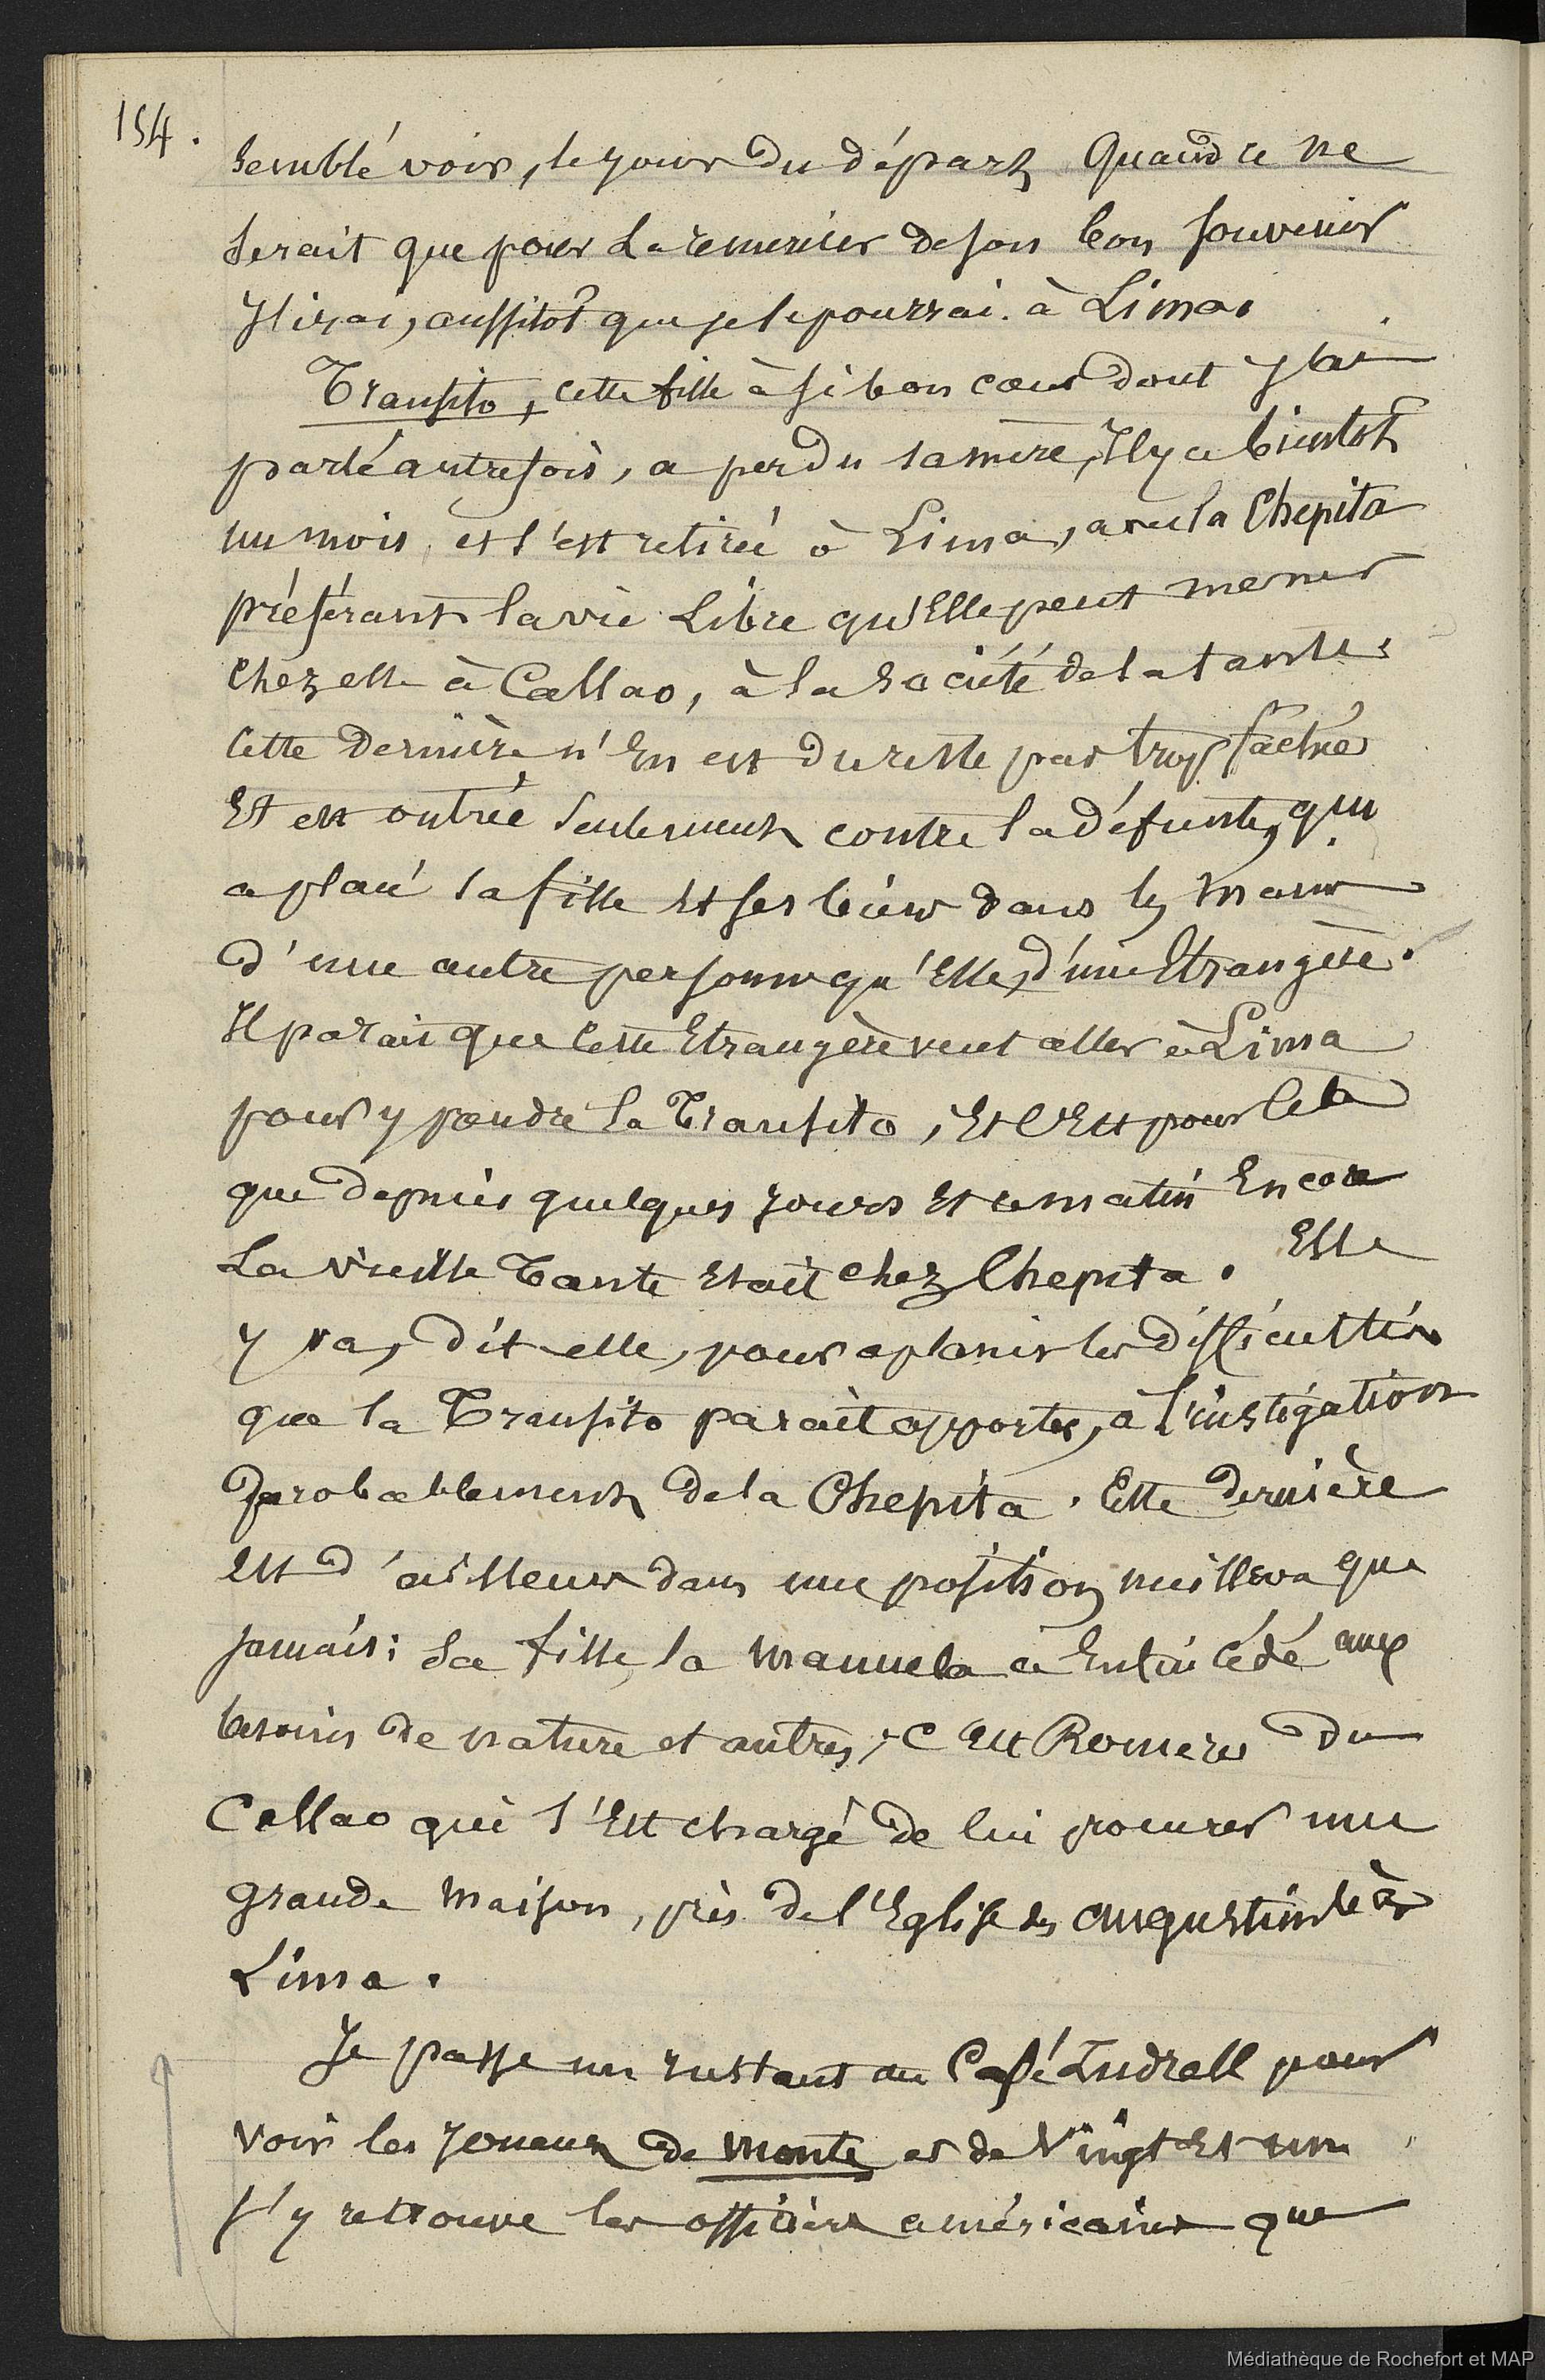 154.
semblé voir, le jour du départ Quand ce ne
serait que pour la remercier de son bon souvenir
J'irai, aussitôt que je le pourrai. à Lima.
Transito, cette fille à si bon coeur dont j'ai
parlé autrefois, a perdu sa mère, Il y a bientôt
un mois, et s'est retirée à Lima, avec la Chepita
préférant la vie Libre qu'Elle peut mener
chez elle à Callao, à la Société de la tante.
Cette dernière n'En est du reste pas trop fâchée
Et est outrée seulement contre la défunte, qui
a placé sa fille Et ses biens dans les mains
d'une autre personne qu'Elle, d'une Etrangère.
Il parait que cette Etrangère veut aller à Lima
pour y prendre la Transito, Et c'Est pour cela
que depuis quelques jours Et ce matin Encore
La vieille Tante Etait chez Chepita. Elle
y va, dit elle, pour aplanir les difficultés
que la Transito parait apporter, à l'instigation
probablement de la Chepita. Cette dernière
est d'ailleurs dans une position meilleure que
jamais: Sa fille, la Manuela a Enfin cédé aux
besoins de nature et autres, C'Est Romero du
Callao qui s'Est chargé de lui procurer une
grande Maison, près de l'Eglise des Augustins à
Lima.
Je passe un instant au Café Indrell pour
voir les joueurs de monte et de Vingt Et un
J'y retrouve les officiers américains que
Médiathèque de Rochefort et MAP